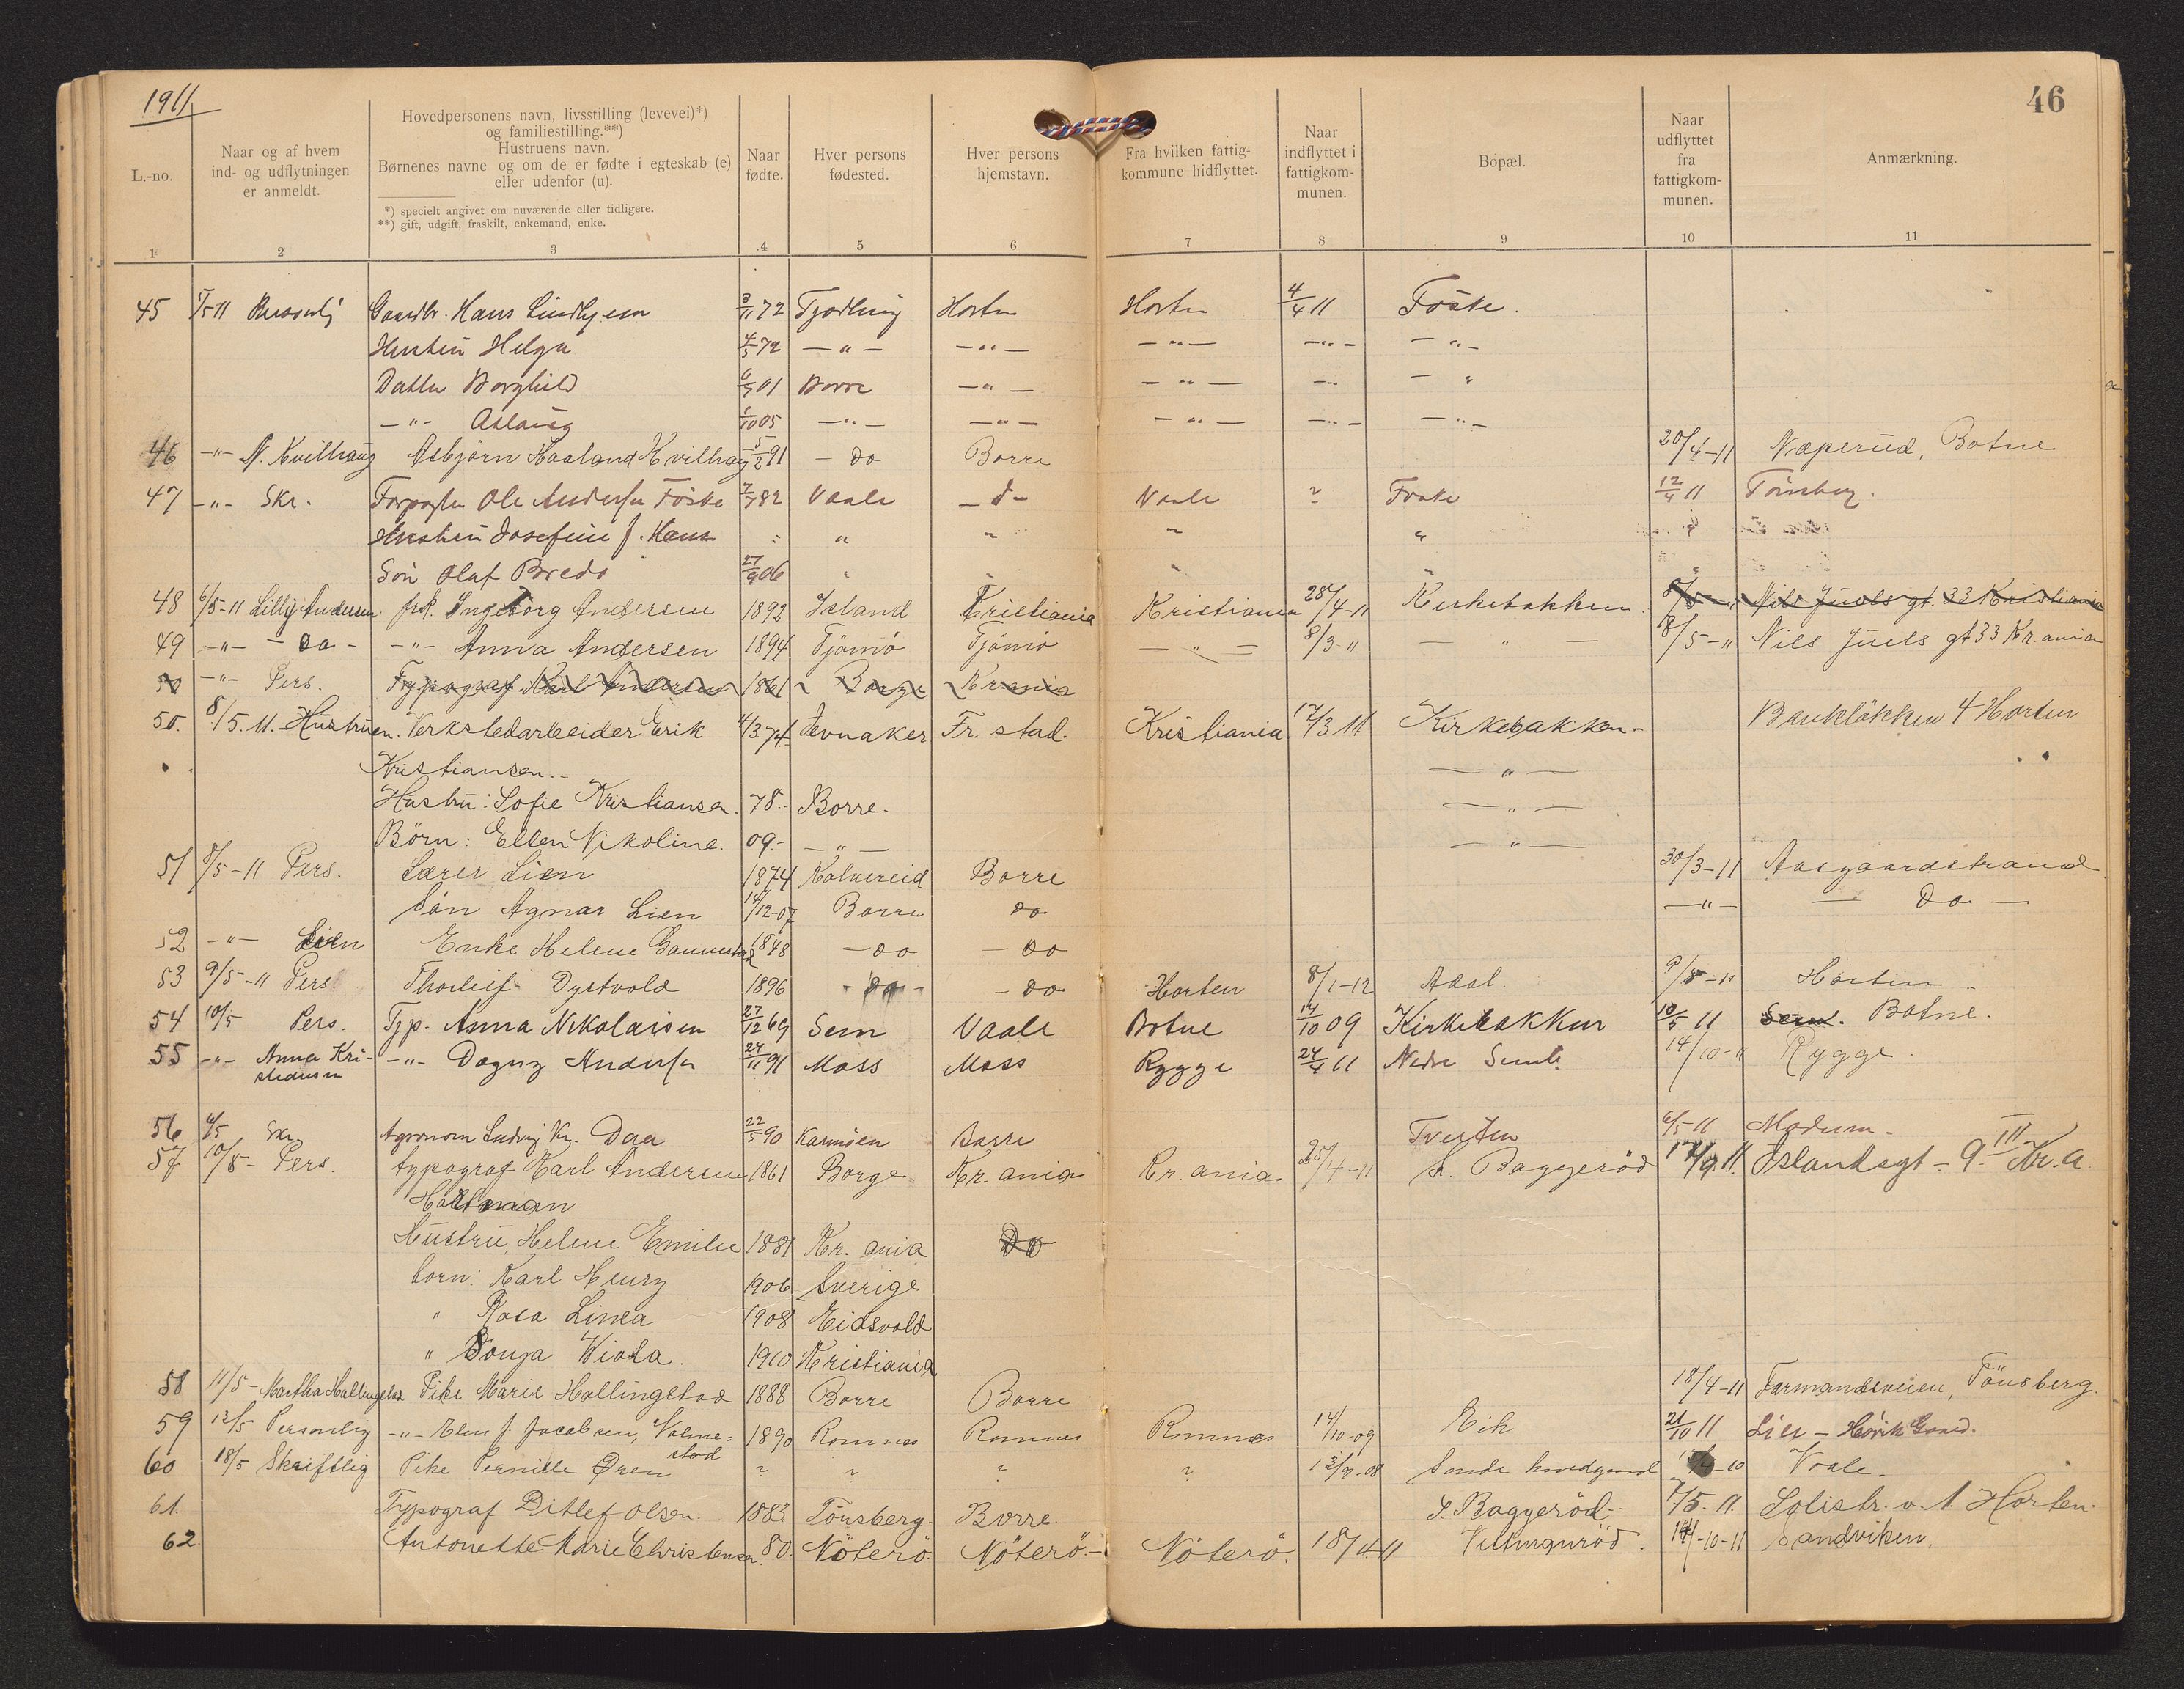 1911
46
L.-no.
Naar og af hvem
ind- og udflytningen
er anmeldt.
Hovedpersonens navn, livsstilling (levevei)*)
og familiestilling.**)
Hustruens navn.
Børnenes navne og om de er fødte i egteskab (e)
eller udenfor (u).
*) specielt angivet om nuværende eller tidligere.
**) gift, udgift, fraskilt, enkemand, enke.
Naar
fødte.
Hver persons
fødested.
Hver persons
hjemstavn.
Fra hvilken fattig-
kommune hidflyttet.
Naar
indflyttet i
fattigkom-
munen.
Bopæl.
Naar
udflyttet
fra
fattigkom-
munen.
Anmærkning.
1 2 3 4 5 6 7 8 9 10 11
45 Gaardbr. Hans Lindhjem 3/11 72 Tjodling Horten Horten 4/4 11 Foske.
Hustru Helga 4/5 72 — " — — " — — " — — " — — " —
Datter Borghild 01 Borre — " — — " — — " — — "
— " — Aslaug 1/10 05 — " — — " — — " — — " — — " —
46 — " — N. Kvilhaug Asbjørn Haaland Kvilhaug 5/2 91 — do Borre 20/4-11 Næperud, Botne
47 — " — Skr. Forpagter Ole Andersen Föske 7/7 82 Vaale — d — Vaale ? Foske 12/4 11 Tönsberg.
Hustru Josefine f. Hans " " " "
Sön Olaf Bredo 27/9 06 " " " "
48 6/5-11 Lilly Andersen frk. Ingeborg Andersen 1892 Island Kristiania Kristiania 28/4-11 Kirkebakken 8/5-" Nils Juels gt. 33 Kristiania
49 — " — — do — — " — Anna Andersen 1894 Tjömö Tjömö — " — 8/3-11 — " — 8/5-" Nils Juels gt 33 Kr.ania
50 — " — Pers. Typograf Karl Andersen 1861 Borge Kr.ania
50. 8/5.11. Hustruen. Verkstedarbeider Erik 4/3 74 Jevnaker Fr. stad. Kristiania 17/3 11 Kirkebakken — Bankløkken 4 Horten
Kristiansen.. — " —
Hustru: Sofie Kristiansen. 78. Borre. — " —
Börn: Ellen Nikoline. 09. — " — — " —
51 8/5-11 Pers. Lærer Lien 1874 Kolvereid Borre 30/3-11 Aasgaardstrand
Sön Agnar Lien 14/12-07 Borre do — " — — do —
52 — " — Lien Enke Helene 1848 — do — do
53 9/5-11 Pers. Thorleif Dystvold 1896 — do — — do Horten 8/1-12 Adal. 9/5-11 Horten
54 10/5 Pers. Typ. Anna Nikolaisen 27/12 69 Sem Vaale Botne 14/10 09 Kirkebakken 10/5 11 Sem. Botne.
55 — " — Anna Kri-
stiansen — " — Dagny Andersen 24/11 91 Moss Moss Rygge 24/4 11 Nedre Semb. 14/10-11 Rygge.
56 6/5 Skr. Agronom Ludvig Kr. Daa 22/5 90 Karmöen Borre Tveiten 6/5-11 Modum.
57 10/5 — Pers. typograf Karl Andersen 1861 Borge Kr. ania Kr. ania 25/4-11 S. Baggeröd 17/9.11. Islandsgt — 9 III Kr.a
Hustru, Helene Emilie 1881 Kr. ania Do
born: Karl Henry 1906 Sverige
" Rosa Linea 1908 Eidsvold
" Sonja Viola. 1910 Kristiania
58 11/5 — Martha Hallingstad Pike Marie Hallingstad 1888 Borre Borre 18/4-11 Farmandsveien, Tönsberg.
59 12/5 Personlig — " — Elen f. Jacobsen, Valme-
stad 1890 Romnes Romnes Romnes 14/10-09 Eik 21/10 11 Lier — Hörik Gaard.
60 18/5 Skriftlig Pike Pernille Øren ? ? ? ? 13/9-08 Sande 10 Vaale.
61. Typograf Ditlef Olsen. 1883 Tönsberg. Borre. S. Baggeröd. 7/5.11. Solistr. v. 1. Horten.
62. Antonette Marie Christensen 80. Nöterö. Nöterö. Nöterö. 18/4-11 14/-10-11 Sandviken.